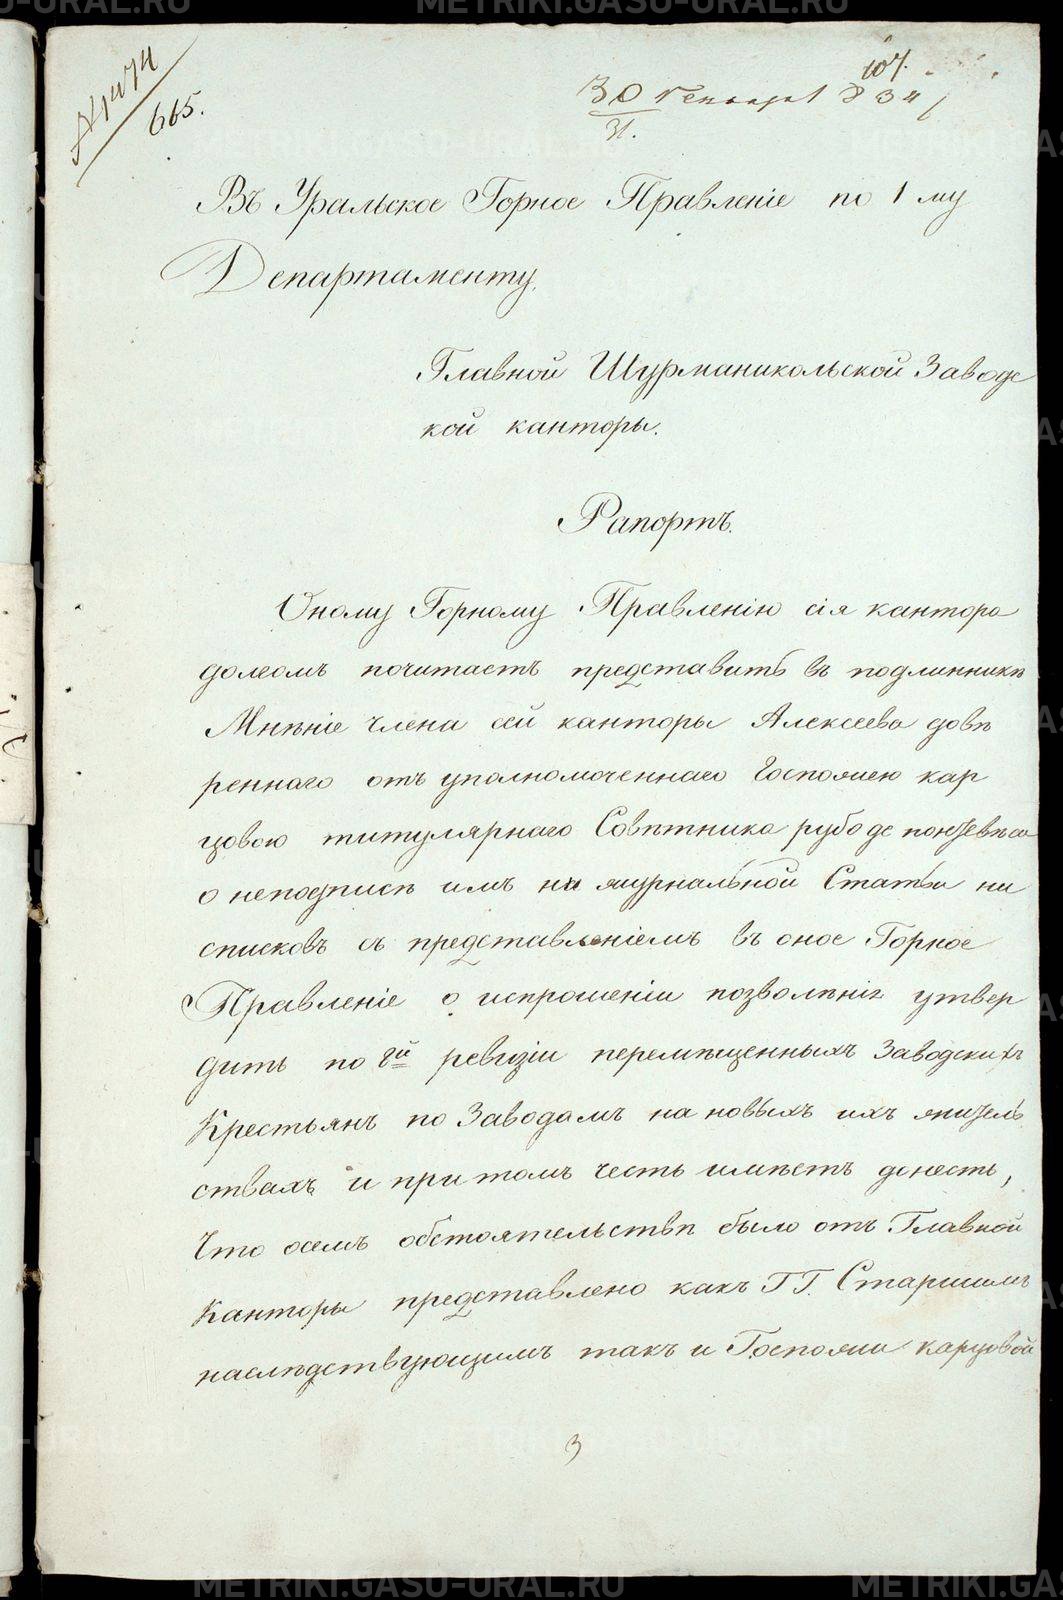 107.
665.
30 Генваря 834
31.
Въ Уральское Горное Правленіе по 1 му
Департаменту.
Главной Шурманикольской Заводс
кой канторы.
Рапортъ.
Оному Горному Правленію сія кантора
долгомъ почитаетъ представить въ подлинникѣ
Мнѣніе члена сей канторы Алексеева довѣ
реннаго отъ уполномоченнаго Госпожею кар
цовою титулярнаго Совѣтника рубо де понтевѣса
о неподписѣ имъ на журнальной Статьи ни
списковъ съ представленіемъ въ оное Горное
Правленіе о испрошеніи позволѣнія утвер
дить по 8й ревизіи перемѣщенныхъ Заводскихъ
Крестьянъ по Заводамъ на новыхъ ихъ жител
ствахъ и при томъ честь имѣетъ донесть,
Что осемъ обстоятельствѣ было отъ Главной
Канторы представлено какъ ГГ. Старшимъ
наслѣдствующимъ такъ и Госпожи карцовой
3
METRIKI.GASU-URAL.RU